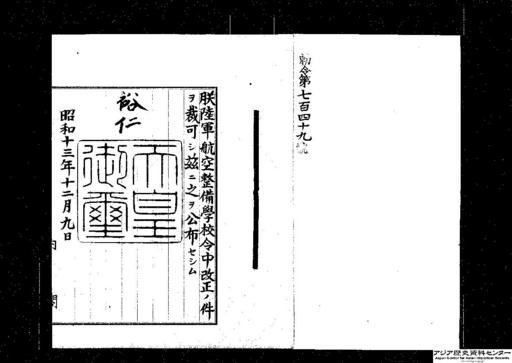 勅令第七百四十九號
朕陸軍航空整備學校令中改正ノ件
ヲ裁可シ茲ニ之ヲ公布セシム
裕仁
天皇
御璽
昭和十三年十二月九日
内閣
アジア歴史資料センター
Japan Center for Asian Historical Records